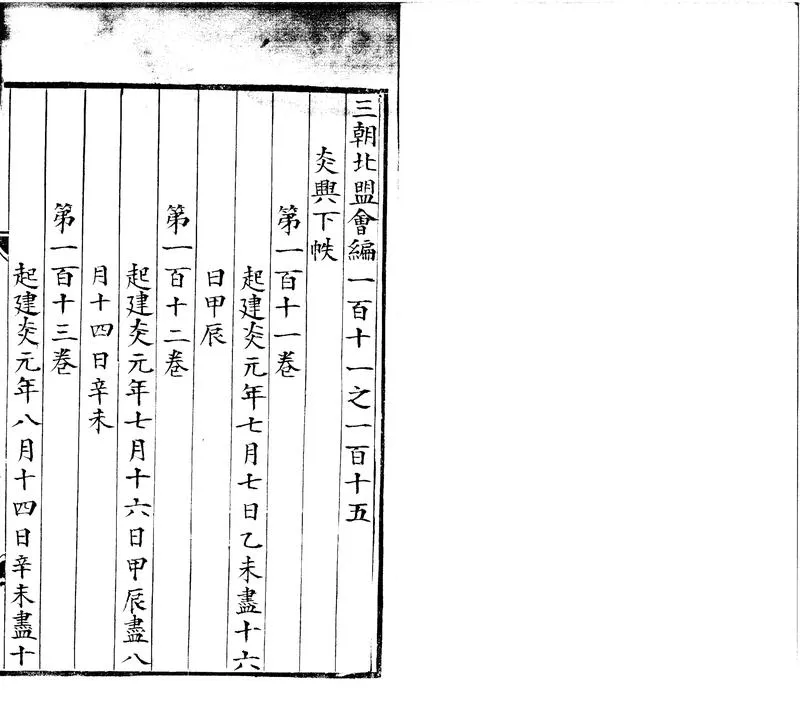 三朝北盟會編一百十一之一百十五
炎興下帙
第一百十一卷
起建炎元年七月七日乙未盡十六
日甲辰
第一百十二卷
起建炎元年七月十六日甲辰盡八
月十四日辛未
第一百十三卷
起建炎元年八月十四日辛未盡十